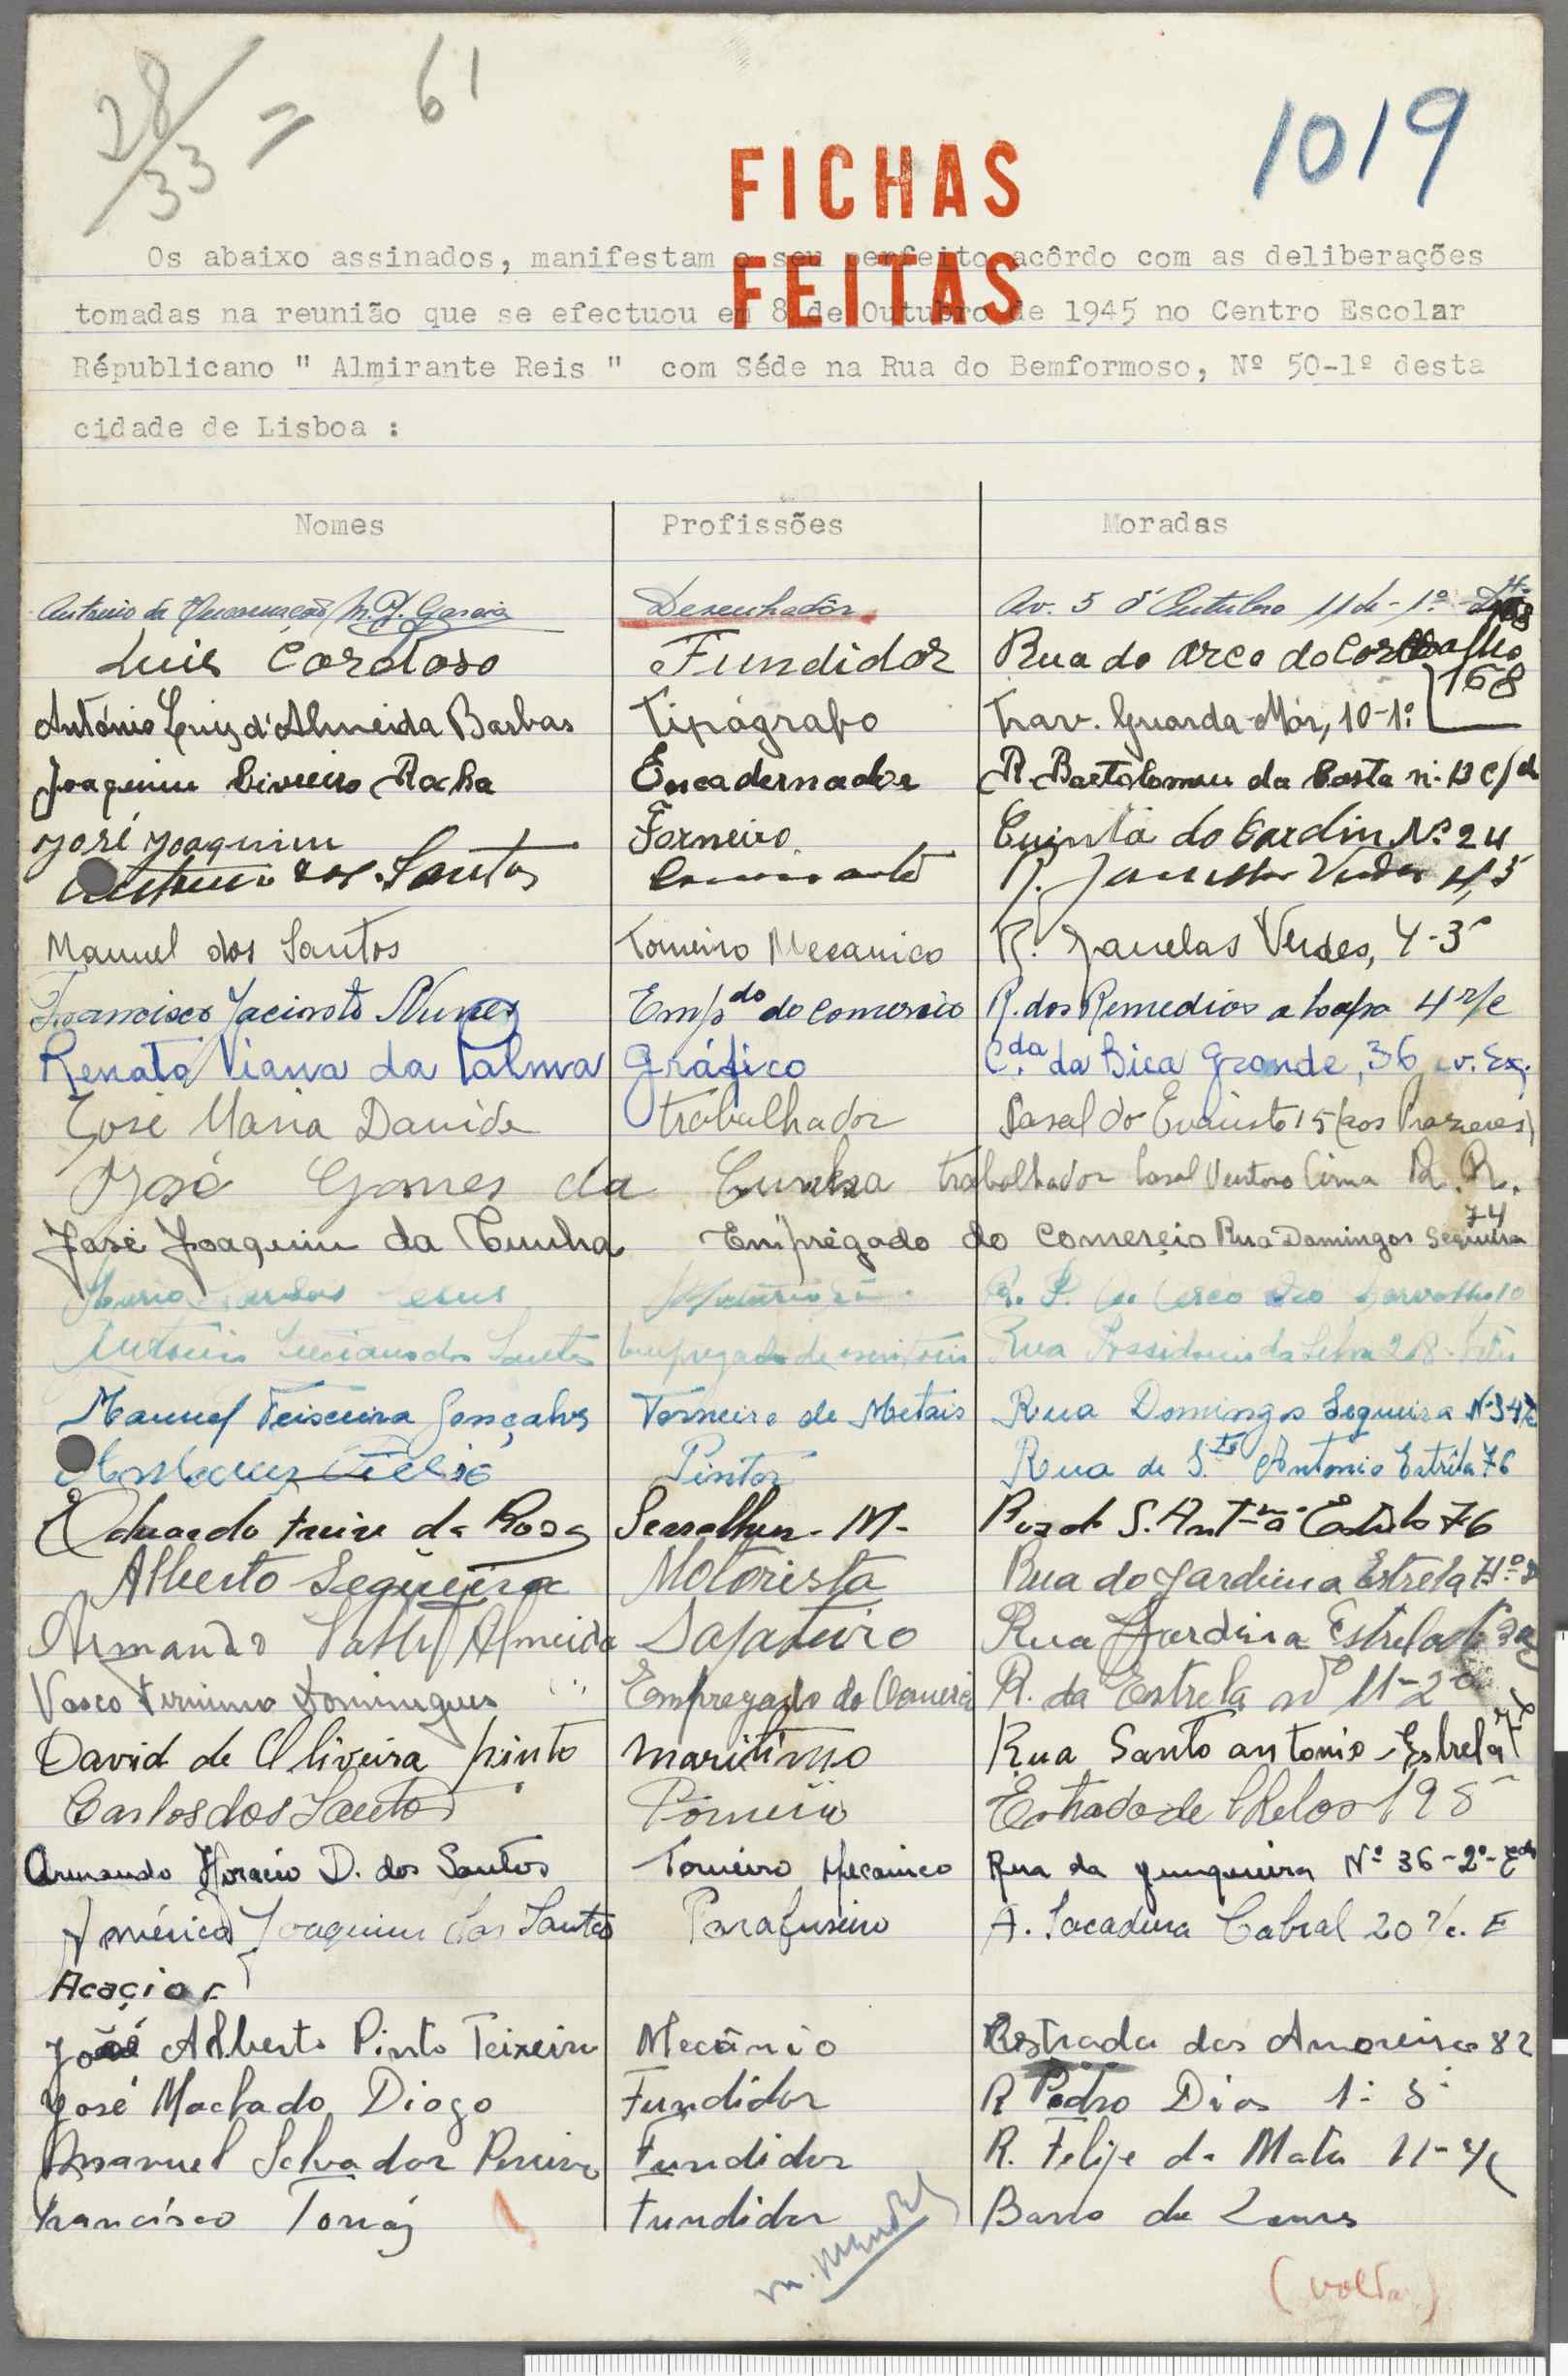 28/33 = 61
1019
FICHAS
FEITAS
Os abaixo assinados, manifestam o seu perfeito acôrdo com as deliberações
tomadas na reunião que se efectuou em 8 de Outubro de 1945 no Centro Escolar
Républicano " Almirante Reis " com Séde na Rua do Bemformoso, Nº 50-1º desta
cidade de Lisboa :
Nomes Profissões Moradas
Antonio da Encarnação M. J. Garcia Desenhador Av. 5 d'Outubro 11 1º
Luis Cardoso Fundidor Rua do Arco do Carvalhão 168
António Luiz d'Almeida Barbas Tipógrafo Trav. Guarda-Mór, 10-1º
Joaquim Rocha Encadernador R. Bartolomeu da Costa nº 13 c/
José Joaquim Forneiro Quinta do Jardim Nº 24
Antonio dos Santos R. Janellas Verdes 4, 3º
Manuel dos Santos Torneiro Mecanico R. Janelas Verdes, 4-3º
Francisco Jacinto Nunes Empdo do Comercio R. dos Remedios a Lapa 4 r/c
Renato Viana da Palma Gráfico Cda da Bica Grande, 36 cv. Ex.
José Maria Davide trabalhador Casal do Evaristo 15 (aos Prazeres)
José Gomes da Cunha trabalhador Casal Ventoso Cima R. R.
José Joaquim da Cunha Empregado do Comercio Rua Domingos Sequeira 74
Jesus R. do Arco do Carvalhão
António Luciano dos Santos Empregado de escritorio Rua Possidonio da Silva 28
Manuel Teixeira Gonçalves Torneiro de Metais Rua Domingos Sequeira Nº 34
Pintor Rua de S.to Antonio Estrela 76
Eduardo Freire da Rosa Serralheiro M- Rua de S. Antº a Estrela 76
Alberto Sequeira Motorista Rua do Jardim a Estrela
Armando Almeida Sapateiro Rua Jardim a Estrela
Vasco Firmino Domingues Empregado do Comercio R. da Estrela nº 11-2º
David de Oliveira pinto maritimo Rua Santo antonio - Estrela
Carlos dos Santos Estrada de Chelas 198
Armando Horacio D. dos Santos Torneiro Mecanico Rua da Junqueira Nº 36-2º-Edº
Américo Joaquim dos Santos Parafuseiro A. Sacadura Cabral 20 r/c. E
Acacio
José Alberto Pinto Teixeira Mecânio Estrada das Amoreiras 82
José Machado Diogo Fundidor R Pedro Dias 1º 3º
Manuel Salvador Pereira Fundidor R. Felipe da Mata 11-r/c
Francisco Tomáz Fundidor Barro de Loures
(volta)